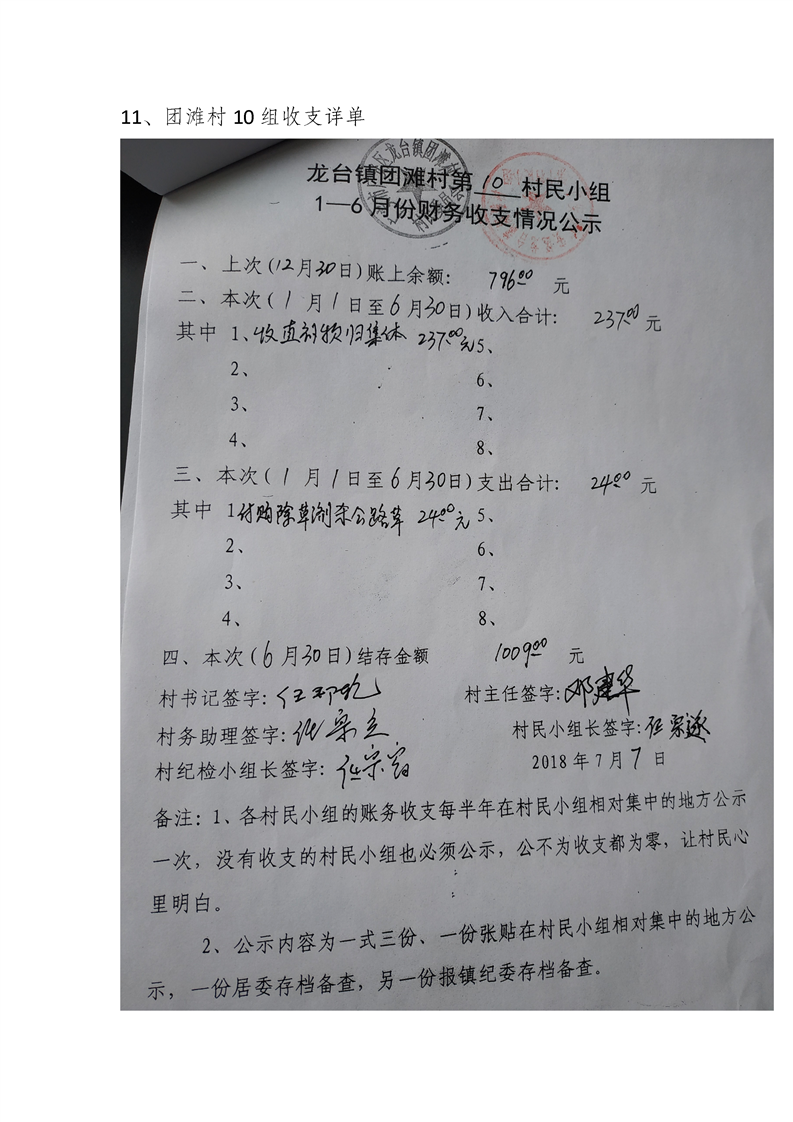 11、团滩村 10 组收支详单
龙台镇团滩村第10村民小组
1—6月份财务收支情况公示
一、上次(12月30日)账上余额: 796.00 元
二、本次(1月1日至6月30日)收入合计: 237.00 元
其中 1、收直补损归集体 237.00元 5、
2、 6、
3、 7、
4、 8、
三、本次(1月1日至6月30日)支出合计: 24.00 元
其中 1、付购除草剂杀公路草 24.00元 5、
2、 6、
3、 7、
4、 8、
四、本次(6月30日)结存金额 1009.00 元
村书记签字: 村主任签字: 邓建华
村务助理签字: 任宗立 村民小组长签字: 任宗
村纪检小组长签字: 任宗 2018年7月7日
备注: 1、各村民小组的账务收支每半年在村民小组相对集中的地方公示
一次, 没有收支的村民小组也必须公示, 公不为收支都为零, 让村民心
里明白。
2、公示内容为一式三份、一份张贴在村民小组相对集中的地方公
示, 一份居委存档备查, 另一份报镇纪委存档备查。